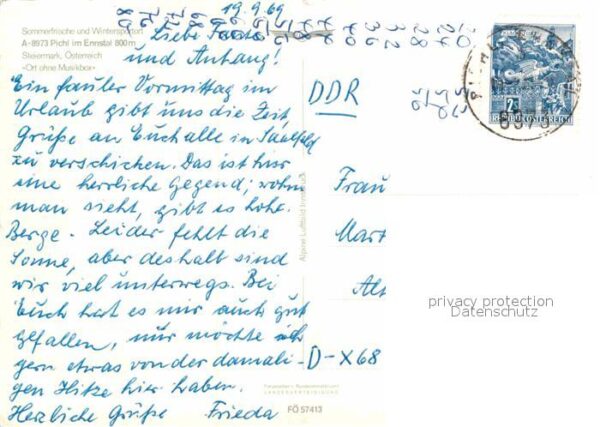 19.9.69
Sommerfrische und Wintersportort
A-8973 Pichl im Ennstal 800m
Steiermark, Österreich
»Ort ohne Musikbox«
Liebe
und Anhang!
Ein fauler Vormittag im
Urlaub gibt uns die Zeit,
Grüße an Euch alle in Saalfeld
zu verschicken. Das ist hier
eine herrliche Gegend; wohin
man sieht, gibt es hohe
Berge. Leider fehlt die
Sonne, aber deshalb sind
wir viel unterwegs. Bei
Euch hat es mir auch gut
gefallen, nur möchte ich
gern etwas von der damali-
gen Hitze hier haben.
Herzliche Grüße Frieda
Alpine Luftbild Innsbruck
FÖ 57413
DDR
Frau
Mart
Alt
D-X68
2S
REPUBLIK ÖSTERREICH
privacy protection
Datenschutz